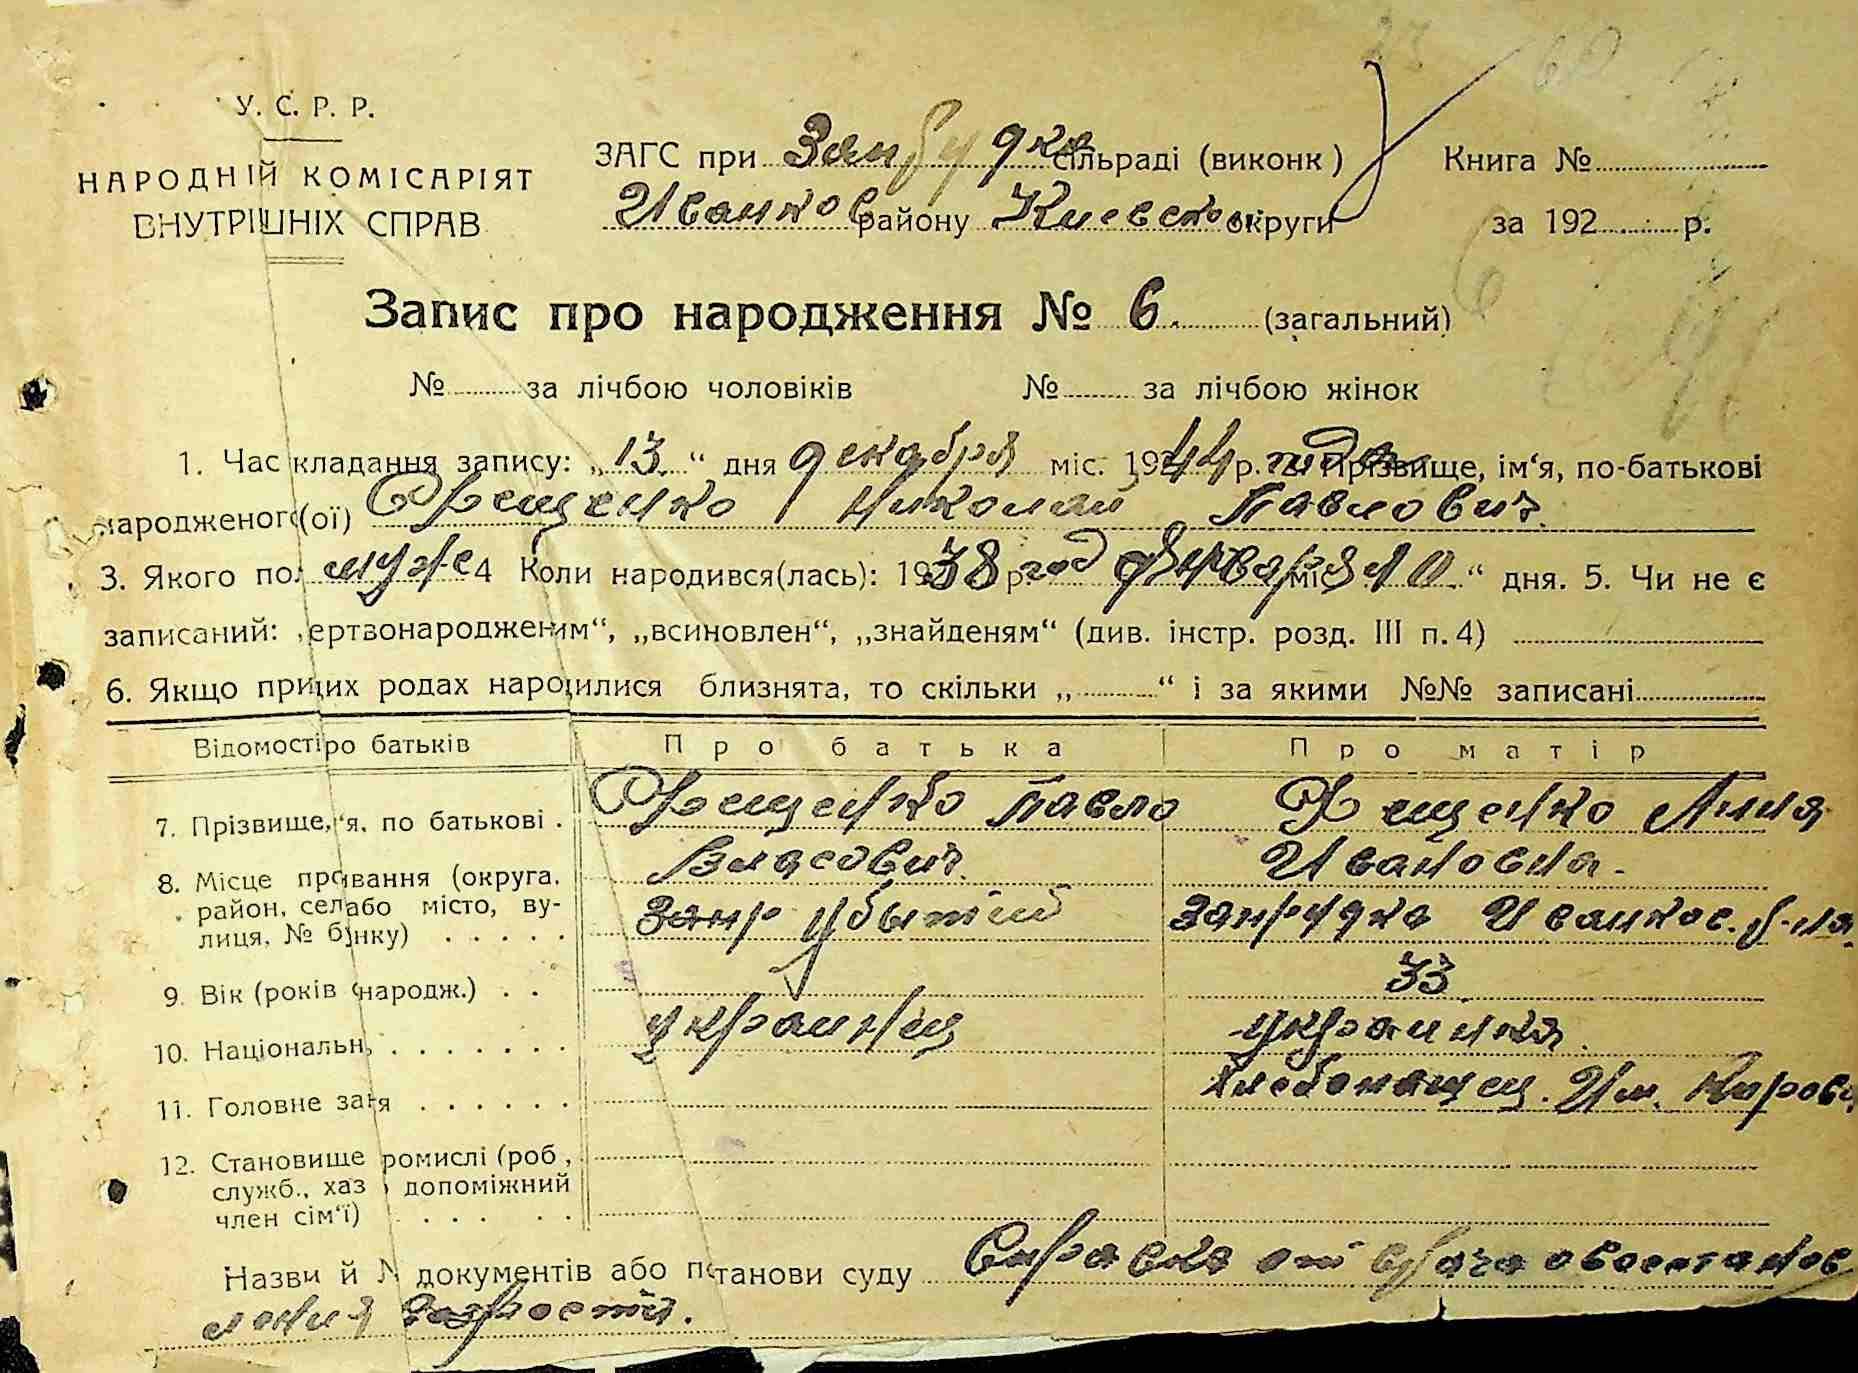 У. С. Р. Р.
НАРОДНІЙ КОМІСАРІЯТ
ВНУТРІШНІХ СПРАВ
ЗАГС при Запрудка сільраді (виконк)
Книга №
Иванков району Киевско округи
за 192 р.
Запис про народження № 6. (загальний)
№ за лічбою чоловіків № за лічбою жінок
1. Час кладання запису: „13.“ дня декабря міс. 1944 р. года Прізвище, ім‘я, по-батькові
народженого(ої) Фещенко Николай Павлович.
3. Якого пол муже 4 Коли народився(лась): 1938 р год января міс 10 “ дня. 5. Чи не є
записаний: ертвонародженим“, „всиновлен“, „знайденям“ (див. інстр. розд. III п. 4)
6. Якщо при цих родах народилися близнята, то скільки „ “ і за якими №№ записані
Відомості про батьків Про батька Про матір
7. Прізвище, ‘я, по батькові . Фещенко Павло Фещенко Анна
Власович. Ивановна.
8. Місце пр вання (округа, район, сел або місто, вулиця, № б нку) Запр убытий Запрудка Иванков. р-на.
9. Вік (років народж.) 33
10. Національн. украинец украинка.
11. Головне за я хлебопашец. Им. Кирова
12. Становище ромислі (роб, служб., хаз допоміжний член сім‘ї)
Назви й № документів або п станови суду Справка от врача о восстанов
лении возрости.